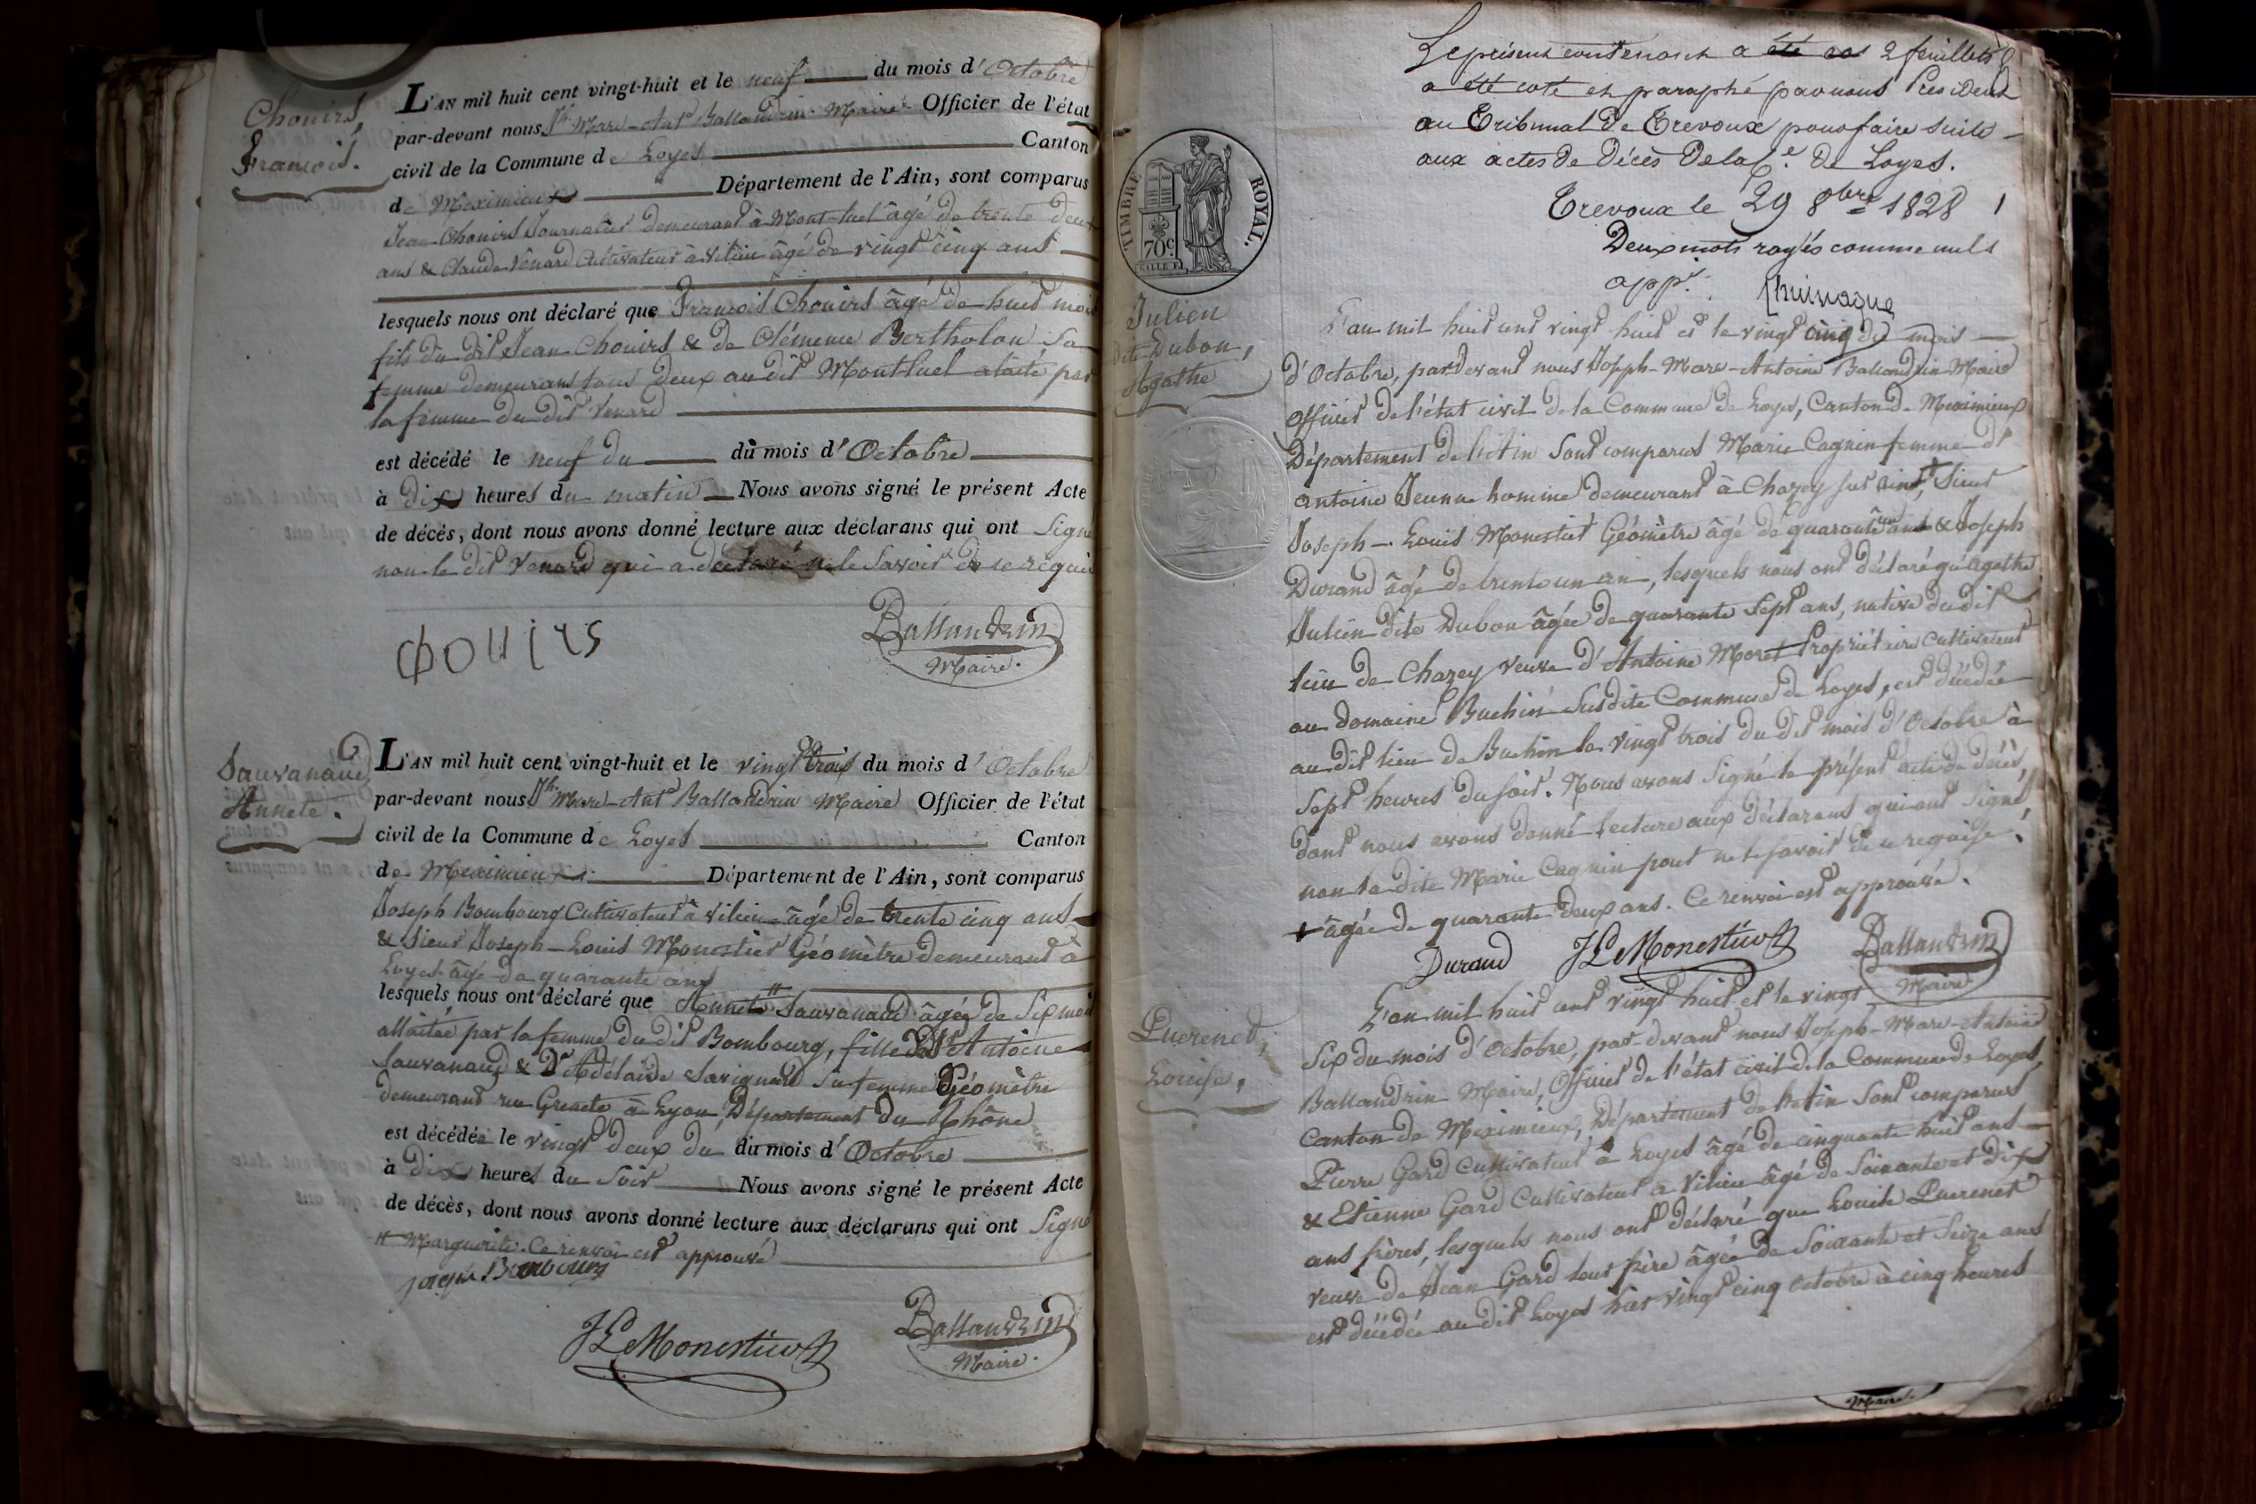 Chouirs
François.
L'AN mil huit cent vingt-huit et le neuf du mois d'Octobre
par-devant nous Jh. Marc-Ant Ballandrin Maire Officier de l'état
civil de la Commune de Loyes Canton
de Meximieux Département de l'Ain, sont comparus
Jean Chouirs Journalier demeurant à Mont-luel âgé de trente deux
ans & Claude Vénard Cultivateur à Vilieu âgé de vingt cinq ans
lesquels nous ont déclaré que François Chouirs âgé de huit mois
fils du dit Jean Chouirs & de Clémence Bertholon sa
femme demeurans tous deux au dit Montluel alaité par
la femme du dit Venard
est décédé le neuf du du mois d'Octobre
à dix heures du matin Nous avons signé le présent Acte
de décès, dont nous avons donné lecture aux déclarans qui ont Signé
non le dit Venard qui a déclaré ne le Savoir de ce requis
Chouirs
Ballandrin
Maire.
Sauvanaud
Annete.
L'AN mil huit cent vingt-huit et le vingt trois du mois d'Octobre
par-devant nous Jh. Marc-Ant Ballandrin Maire Officier de l'état
civil de la Commune de Loyes Canton
de Meximieux Département de l'Ain, sont comparus
Joseph Bombourg Cultivateur à Vilieu âgé de trente cinq ans
& Sieur Joseph-Louis Monestier Géomètre demeurant à
Loyes âgé de quarante ans
lesquels nous ont déclaré que Annete # Sauvanaud âgée de Six mois
allaitée par la femme du dit Bombourg, fille de Sr Antoine
Sauvanaud & De Adélaïde Savignard sa femme Géomètre
demeurant rue Grenete à Lyon, Département du Rhône
est décédée le vingt deux du du mois d'Octobre
à dix heures du Soir Nous avons signé le présent Acte
de décès, dont nous avons donné lecture aux déclarans qui ont Signé
# Marguerite. Ce renvoi est approuvé
joseph Bombourg
JLeMonestier
Ballandrin
Maire.
Le présent contenant a été cos 2 feuillets
a été coté et paraphé par nous Président
au Tribunal de Trevoux pour faire suite
aux actes de décès de la Ce. de Loyes.
Trevoux le 29 8bre 1828
Deux mots rayés comme nuls
appé.
TIMBRE ROYAL.
70c
Julien
dite Dubon,
Agathe
L'an mil huit cent vingt huit et le vingt cinq du mois
d'Octobre, pardevant nous Joseph-Marc-Antoine Ballandrin Maire
Officier de l'état civil de la Commune de Loyes, Canton de Meximieux
Département de l'Ain Sont comparus Marie Cagnin femme d'
Antoine Jeune homme demeurant à Chazey sur ains, Sieur
Joseph-Louis Monestier Géomètre âgé de quarante un ans & Joseph
Durand âgé de trente un an, lesquels nous ont déclaré qu'Agathe
Julien dite Dubon âgée de quarante Sept ans, native du dit
lieu de Chazey veuve d'Antoine Moret Propriétaire Cultivateur
au domaine Buchin Susdite Commune de Loyes, est décédée
au dit lieu de Buchin le vingt trois du dit mois d'Octobre à
Sept heures du soir. Nous avons Signé le présent acte de décès,
dont nous avons donné lecture aux déclarans qui ont Signé,
non la dite Marie Cagnin pour ne le savoir de ce requise.
+ âgée de quarante deux ans. Ce renvoi est approuvé.
Durand JLeMonestier Ballandrin
Maire
Querenet,
Louise,
L'an mil huit cent vingt huit et le vingt
Six du mois d'Octobre, par-devant nous Joseph-Marc-Antoine
Ballandrin Maire, Officier de l'état civil de la Commune de Loyes,
Canton de Meximieux, Département de l'Ain Sont comparus
Pierre Gard Cultivateur à Loyes âgé de cinquante huit ans
& Etienne Gard Cultivateur à Vilieu âgé de Soixante et dix
ans frères, lesquels nous ont déclaré que Louise Querenet
veuve de Jean Gard leur frère âgée de Soixante et Seize ans
est décédée au dit Loyes hier vingt cinq octobre à cinq heures
Maire